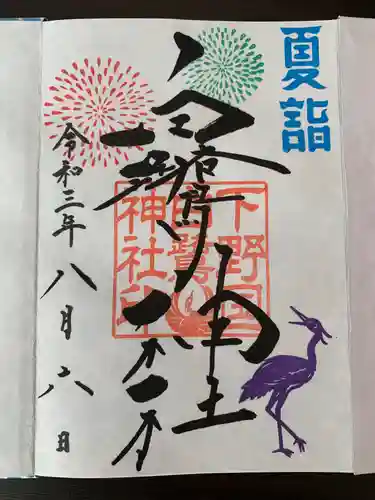 夏詣
白鷺神社
下野国
白鷺
神社印
令和三年
八月六日